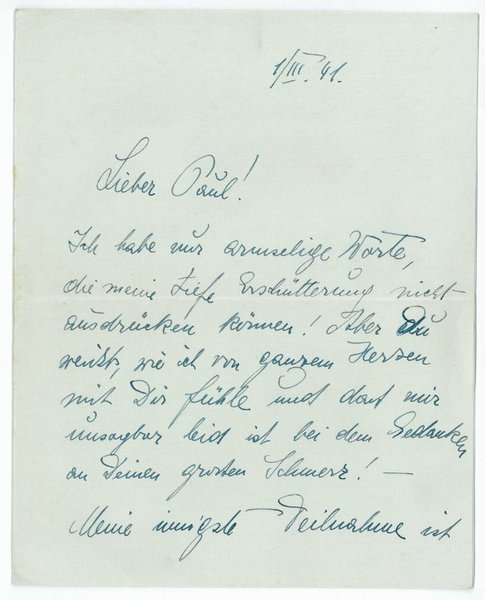 1/III. 41.
Lieber Paul!
Ich habe nur armselige Worte,
die meine tiefe Erschütterung nicht
ausdrücken können! Aber Du
weißt, wie ich von ganzem Herzen
mit Dir fühle und daß mir
unsagbar leid ist bei dem Gedanken
an Deinen großen Schmerz! —
Meine innigste Teilnahme ist